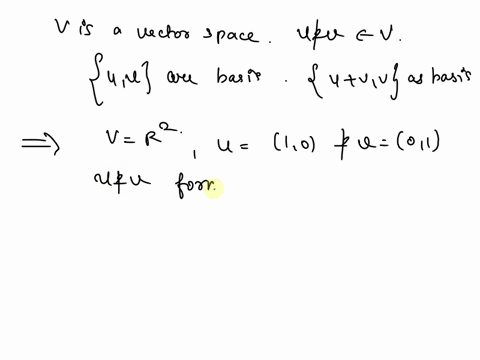 V is a vector space. u & v ∈ V.
{u, v} are basis. {u+v, v} as basis
⇒ V = R². , u = (1,0) & v = (0,1)
u & v form